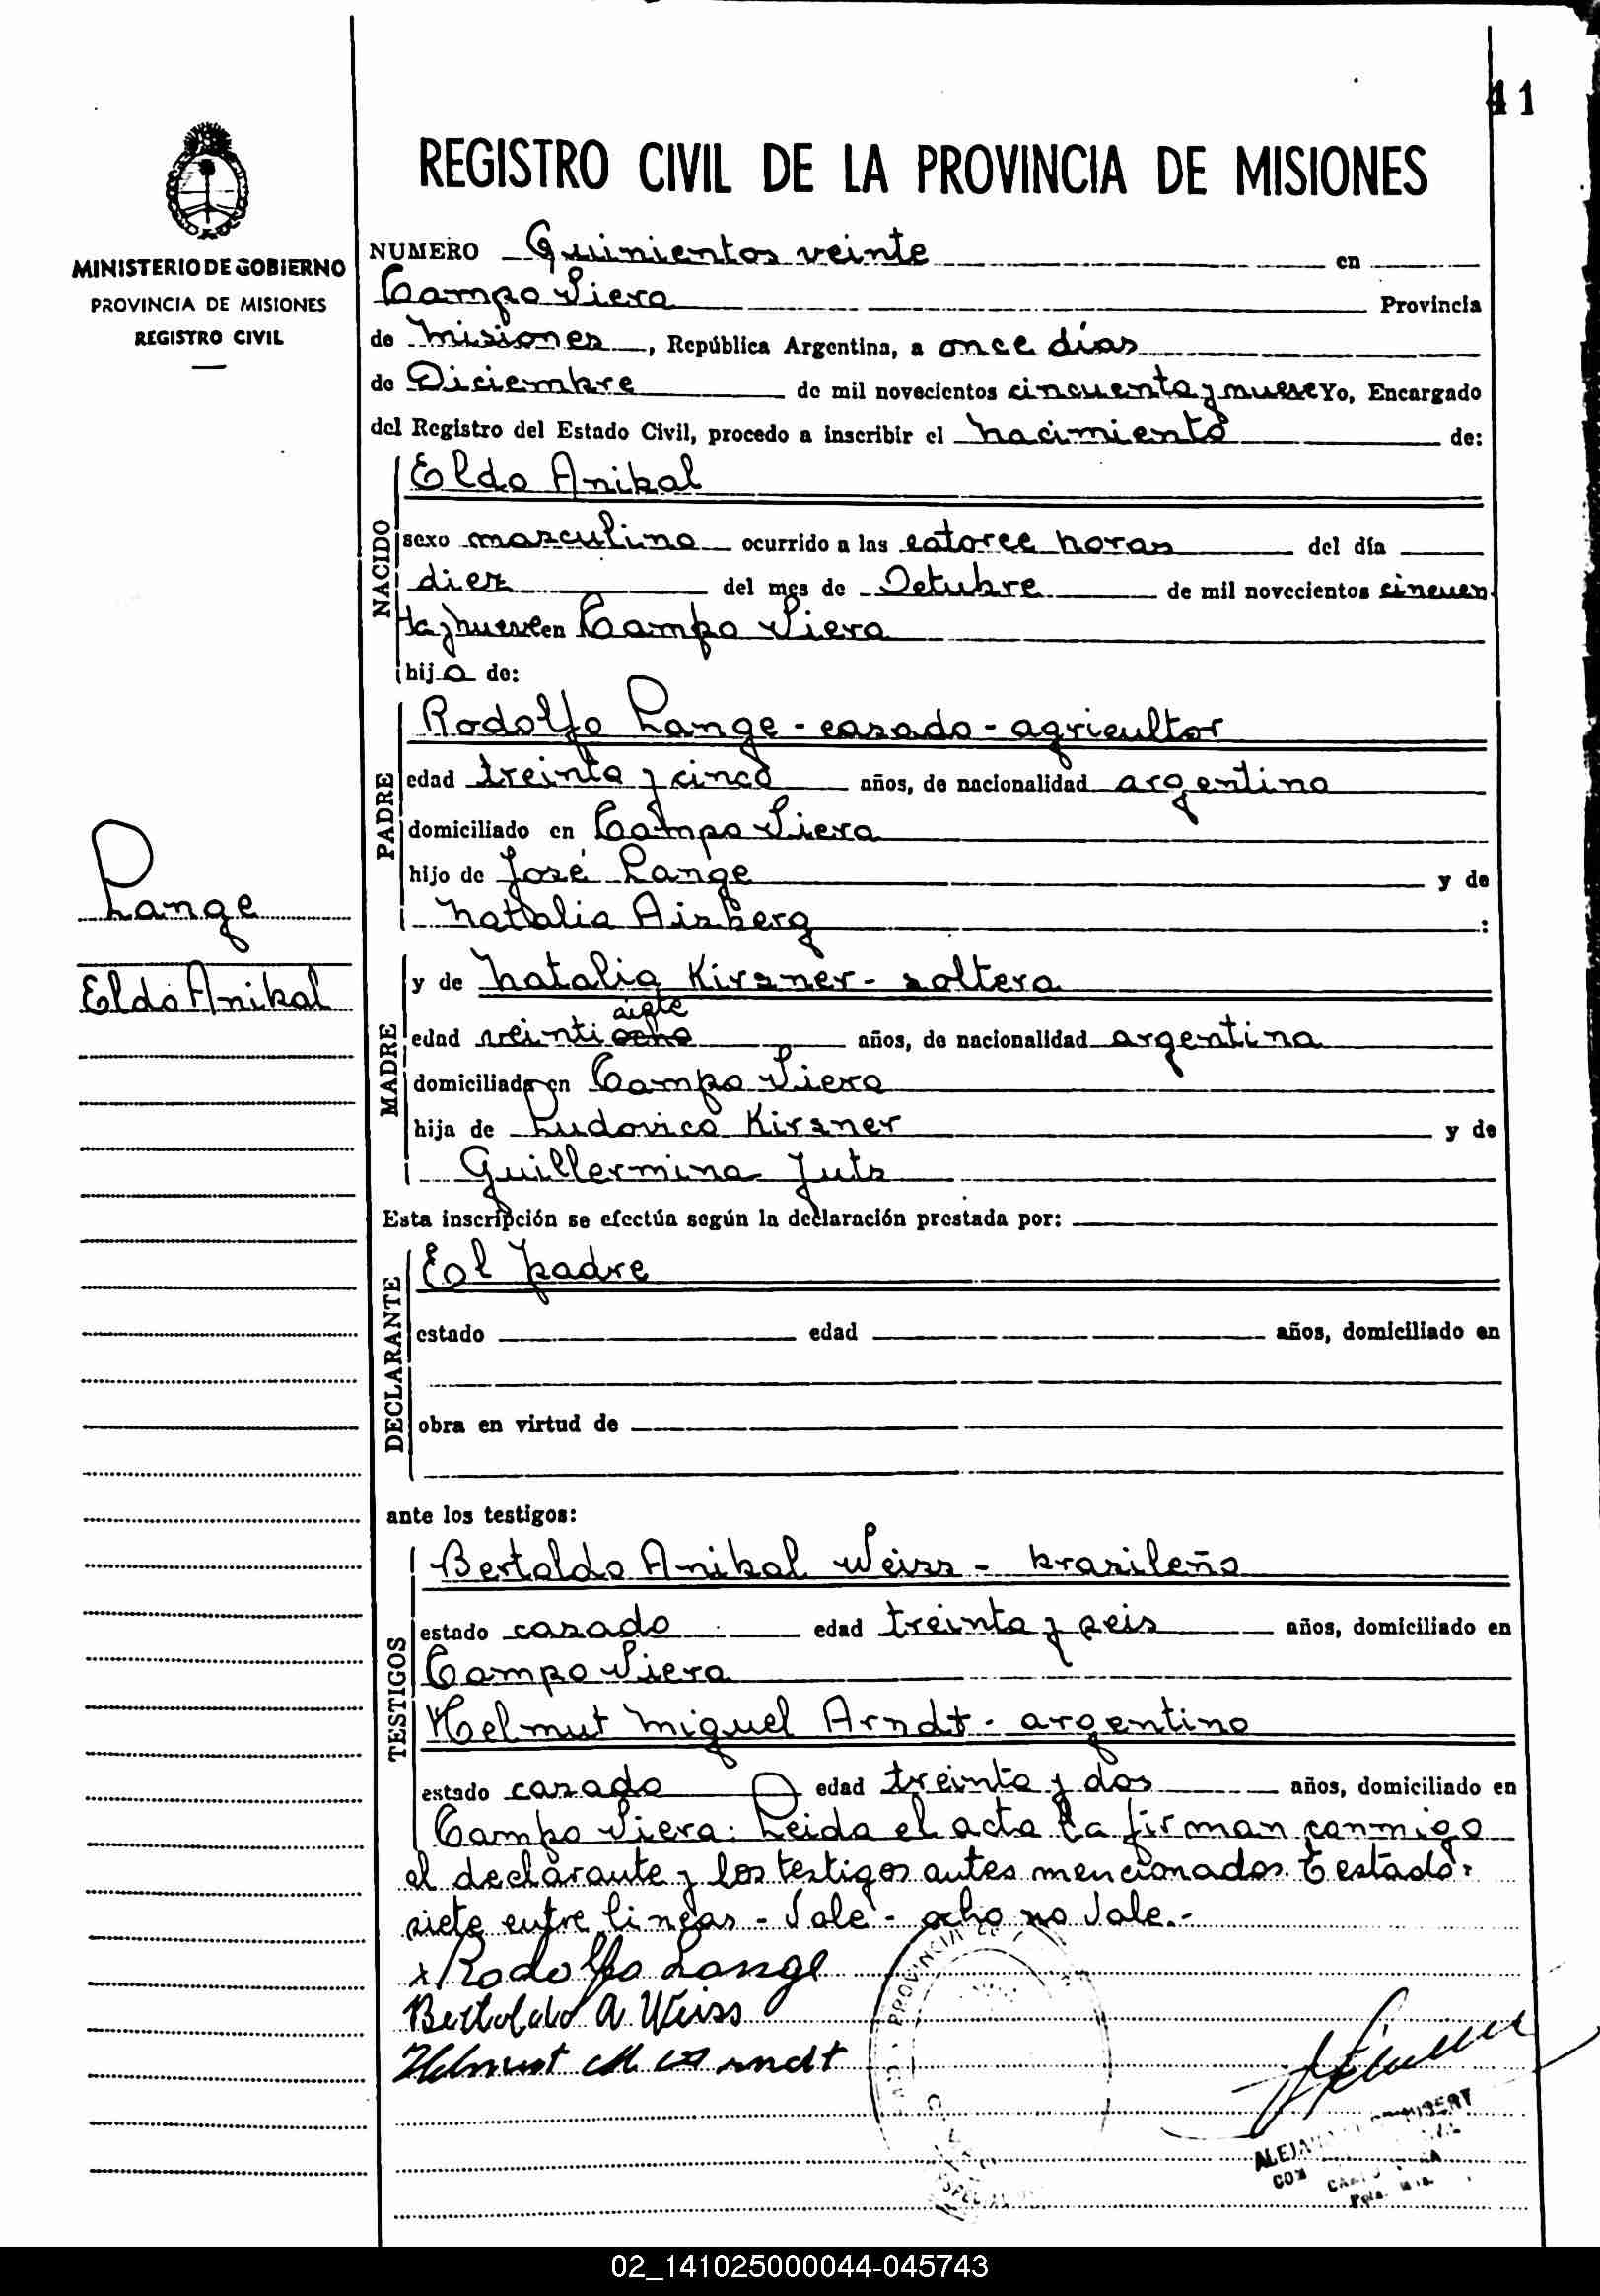 41
REGISTRO CIVIL DE LA PROVINCIA DE MISIONES
MINISTERIO DE GOBIERNO
PROVINCIA DE MISIONES
REGISTRO CIVIL
NUMERO Quinientos veinte en
Campo Viera Provincia
de Misiones, República Argentina, a once días
de Diciembre de mil novecientos cincuenta y nueve Yo, Encargado
del Registro del Estado Civil, procedo a inscribir el nacimiento de:
NACIDO
Eldo Anibal
sexo masculino ocurrido a las catorce horas del día
diez del mes de Octubre de mil novecientos cincuen
ta y nueve en Campo Viera
hijo de:
PADRE
Rodolfo Lange - casado - agricultor
edad treinta y cinco años, de nacionalidad argentina
domiciliado en Campo Viera
hijo de José Lange y de
Natalia Aisberg :
Lange
Eldo Anibal
MADRE
y de Natalia Kirsner - soltera
siete
edad veinti ocho años, de nacionalidad argentina
domiciliada en Campo Viera
hija de Ludovico Kirsner y de
Guillermina Juts
Esta inscripción se efectúa según la declaración prestada por:
DECLARANTE
El padre
estado edad años, domiciliado en
obra en virtud de
ante los testigos:
TESTIGOS
Bertoldo Anibal Weiss - brasileño
estado casado edad treinta y seis años, domiciliado en
Campo Viera
Helmut Miguel Arndt - argentino
estado casado edad treinta y dos años, domiciliado en
Campo Viera: Leida el acta la firman conmigo
el declarante y los testigos antes mencionados. Testado:
siete entre lineas - Vale - ocho no Vale.-
x Rodolfo Lange
Bertoldo A Weiss
Helmut M Arndt
PROVINCIA DE
02_141025000044-045743